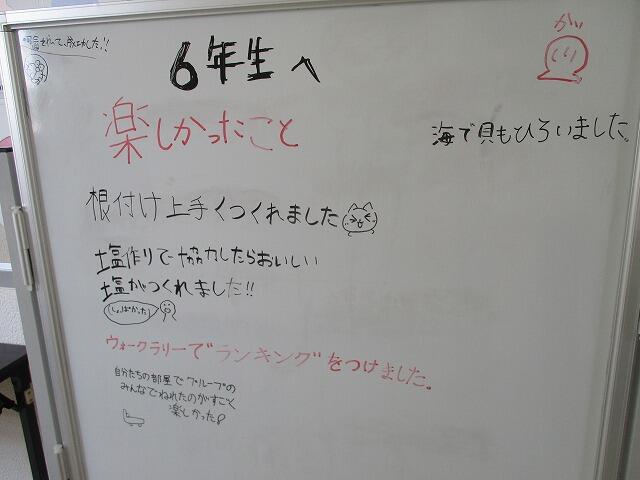 6年生へ
がい
楽しかったこと
海で貝もひろいました。
根付け上手くつくれました
塩作りで協力したらおいしい
塩がつくれました!!
しょぱかった
ウォークラリーで"ランキング"をつけました。
自分たちの部屋でグループの
みんなでねれたのがすごく
楽しかった